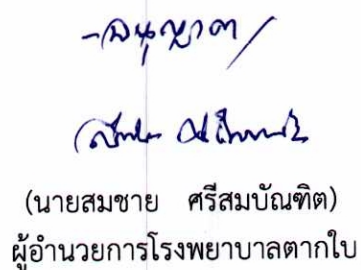 -อนุญาต/
(นายสมชาย ศรีสมบัณฑิต)
ผู้อำนวยการโรงพยาบาลตากใบ